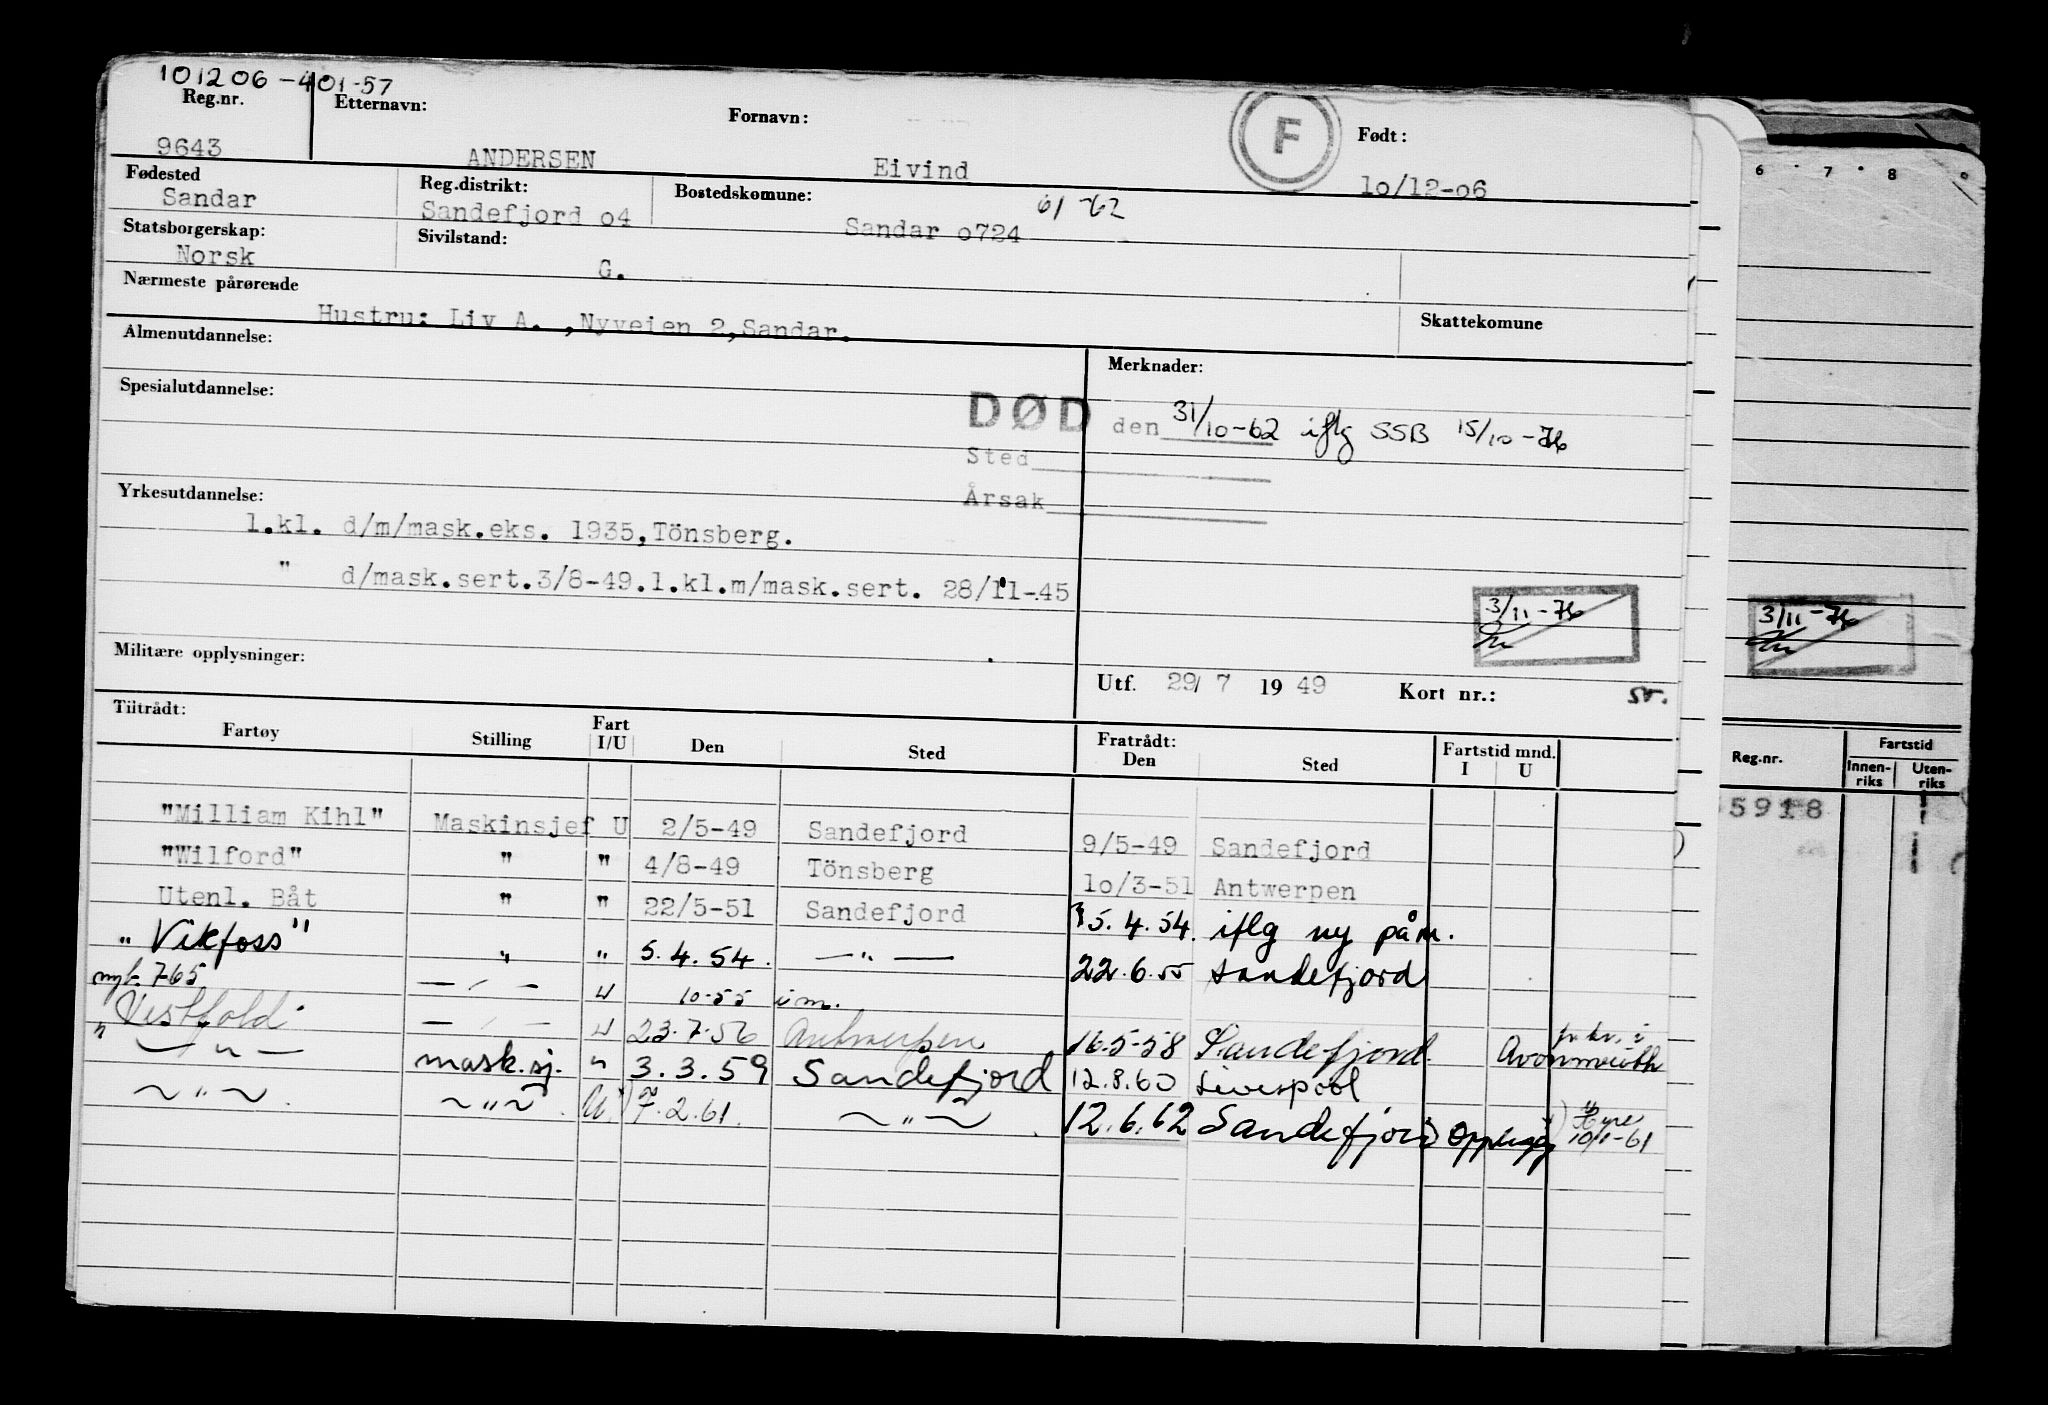 101206-401-57
Reg.nr. Etternavn: Fornavn: F Født:
9643 ANDERSEN Eivind 10/12-06
Fødested Reg.distrikt: Bostedskomune: 61-62
Sandar Sandefjord 04 Sandar 0724
Statsborgerskap: Sivilstand:
Norsk G.
Nærmeste pårørende
Hustru: Liv A. ,Nyveien 2,Sandar. Skattekomune
Almenutdannelse: Merknader:
Spesialutdannelse:
DØD den 31/10-62 iflg SSB 15/10-76
Sted
Årsak
Yrkesutdannelse:
1.kl. d/m/mask.eks. 1935,Tönsberg.
" d/mask.sert.3/8-49.1.kl.m/mask.sert. 28/11-45
3/11-76
Militære opplysninger:
Utf. 29/ 7 19 49 Kort nr.: sv.
Tiltrådt: Fratrådt:
Fartøy Stilling Fart I/U Den Sted Den Sted Fartstid mnd. I U
"Milliam Kihl" Maskinsjef U 2/5-49 Sandefjord 9/5-49 Sandefjord
"Wilford" " " 4/8-49 Tönsberg 10/3-51 Antwerpen
Utenl. Båt " " 22/5-51 Sandefjord 5.4.54. iflg ny påm.
"Vikfoss" " " 5.4.54. — " — 22.6.55 Sandefjord
myt. 7-65 — " — U 10-55 im.
"Vestfold" — " — U 23.7.56 Antwerpen 16.5-58 Sandefjord. Avonmouth
— " — mask.sj. " 3.3.59 Sandefjord 12.8.60 Liverpool
— " — — " — U 7.2.61. — " — 12.6.62 Sandefjord Opplegg 10/1-61
6 7 8
3/11-76
Reg.nr. Fartstid
Innenriks Utenriks
5918